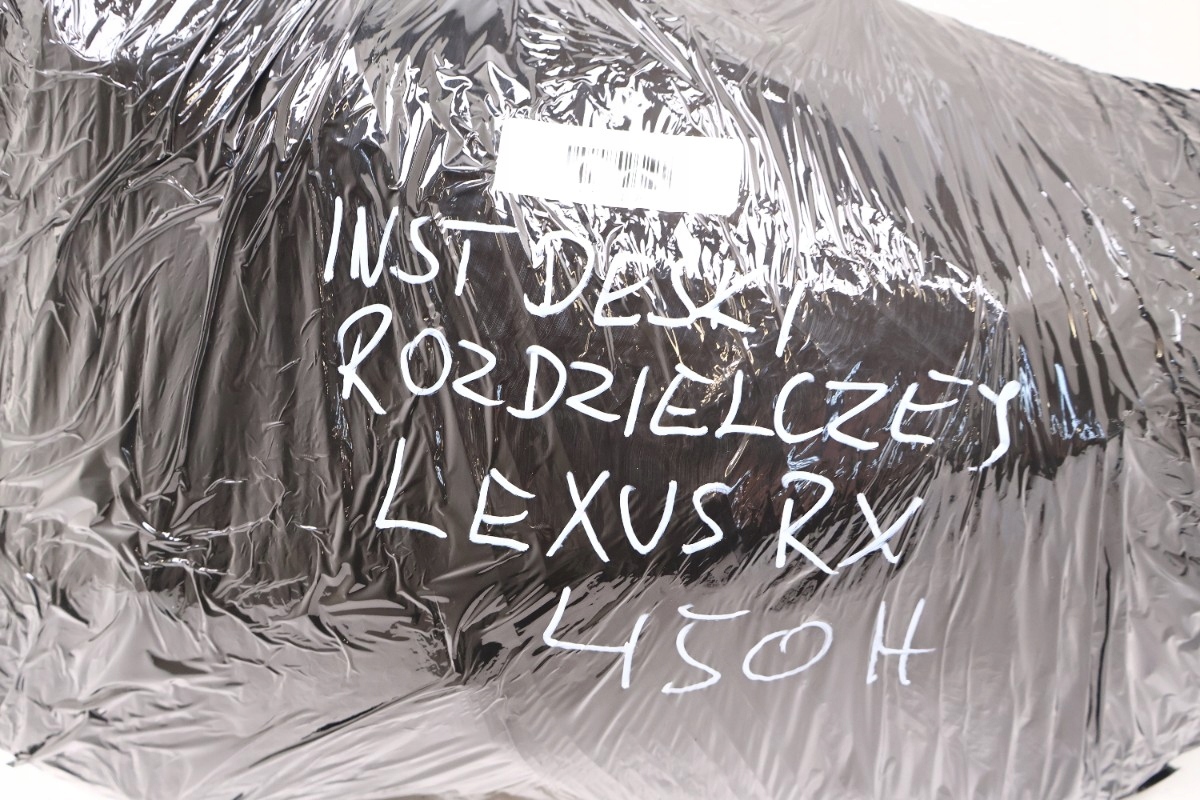 INST DESKI
ROZDZIELCZEJ
LEXUS RX
450H